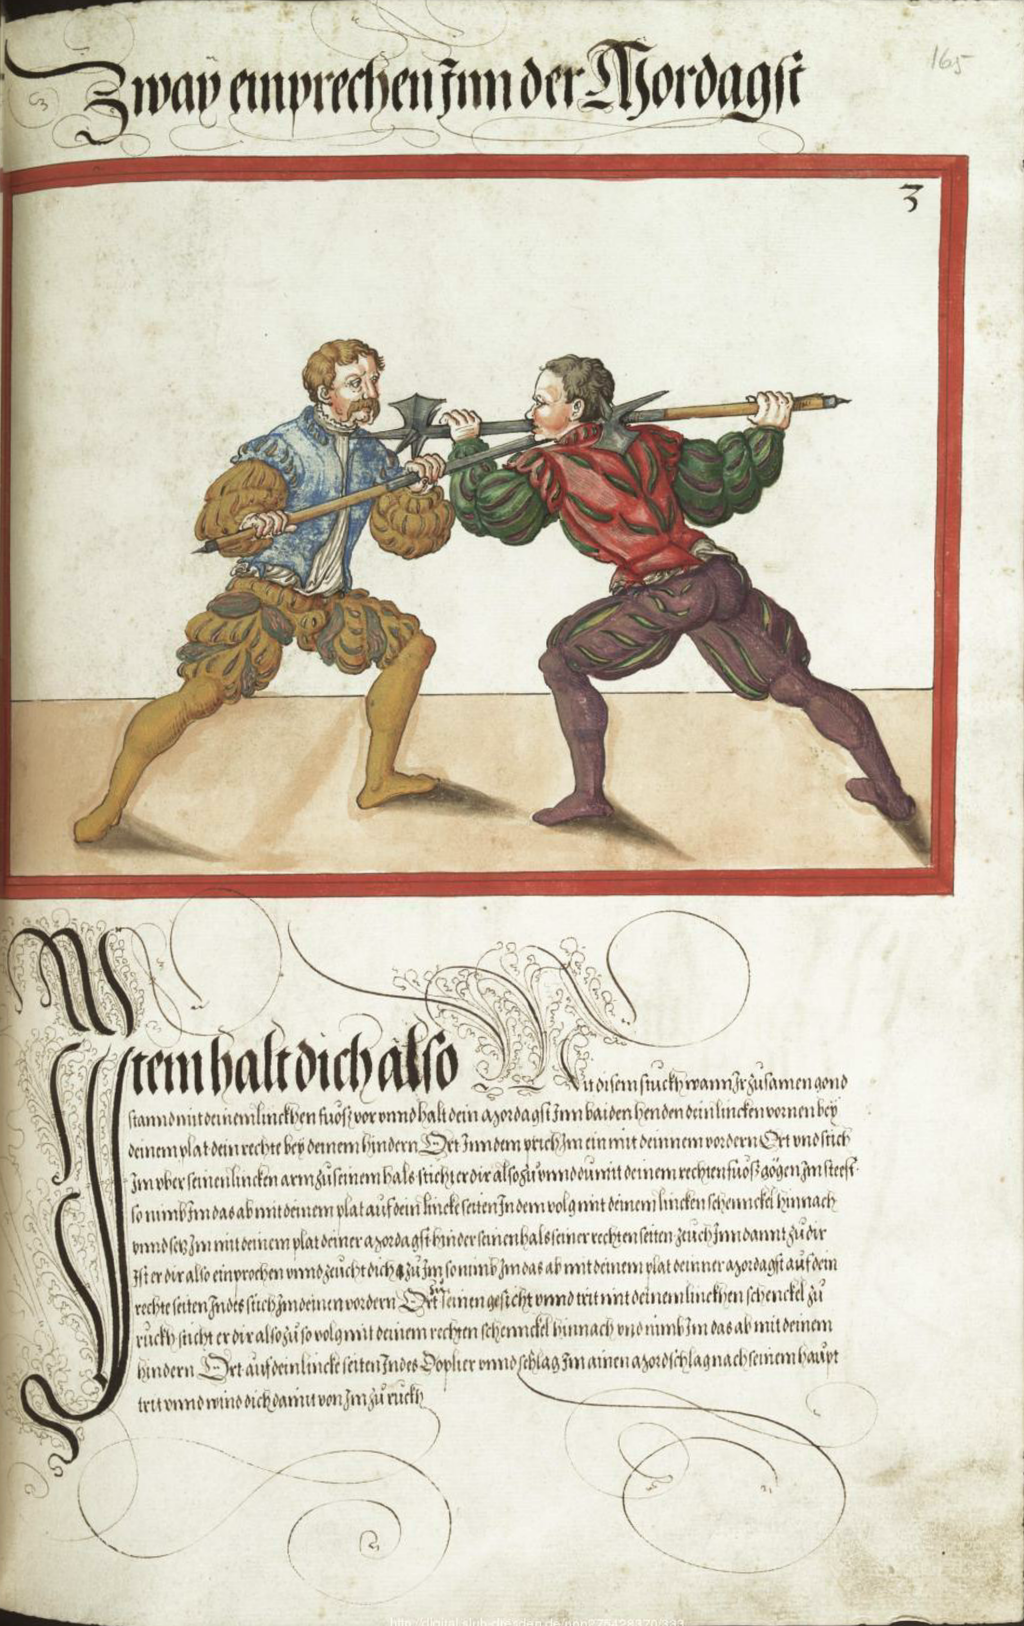 165
Zway einprechen Jnn der Mordagst
3
Jtem halt dich also
Jn disem stuckh wann Jr zusamen gond
stannd mit deinem linckhen fuoß vor vnnd halt dein mordagst Jnn baiden henden dein lincken vornen bey
deinem plat dein rechte bey deinem hindern Ort Jnn dem prich Jm ein mit deinnem vordern Ort vnd stich
Jm vber seinen lincken arm zu seinem hals sticht er dir also zu vnnd du mit deinem rechten fuoß gögen Jm steest
so nimb Jm das ab mit deinem plat auf dein lincke seiten Jndem volg mit deinem lincken schennckel hinnach
vnnd setz Jm mit deinem plat deiner mordagst hinder seinen hals seiner rechten seiten zeuch Jnn damit zu dir
Jst er dir also einprochen vnnd zeucht dich zu Jm so nimb Jm das ab mit deinem plat deinner mordagst auf dein
rechte seiten Jndes stich Jm deinen vordern Ort Jnn sein gesicht vnnd trit mit deinem linckhen schenckel zu
ruckh sticht er dir also zu so volg mit deinem rechten schennckel hinnach vnd nimb Jm das ab mit deinem
hindern Ort auf dein lincke seiten Jndes Doplier vnnd schlag Jm ainen mordschlag nach seinem haupt
trit vnnd wind dich damit von Jm zu ruckh
http://digital.slub-dresden.de/ppn275428370/333